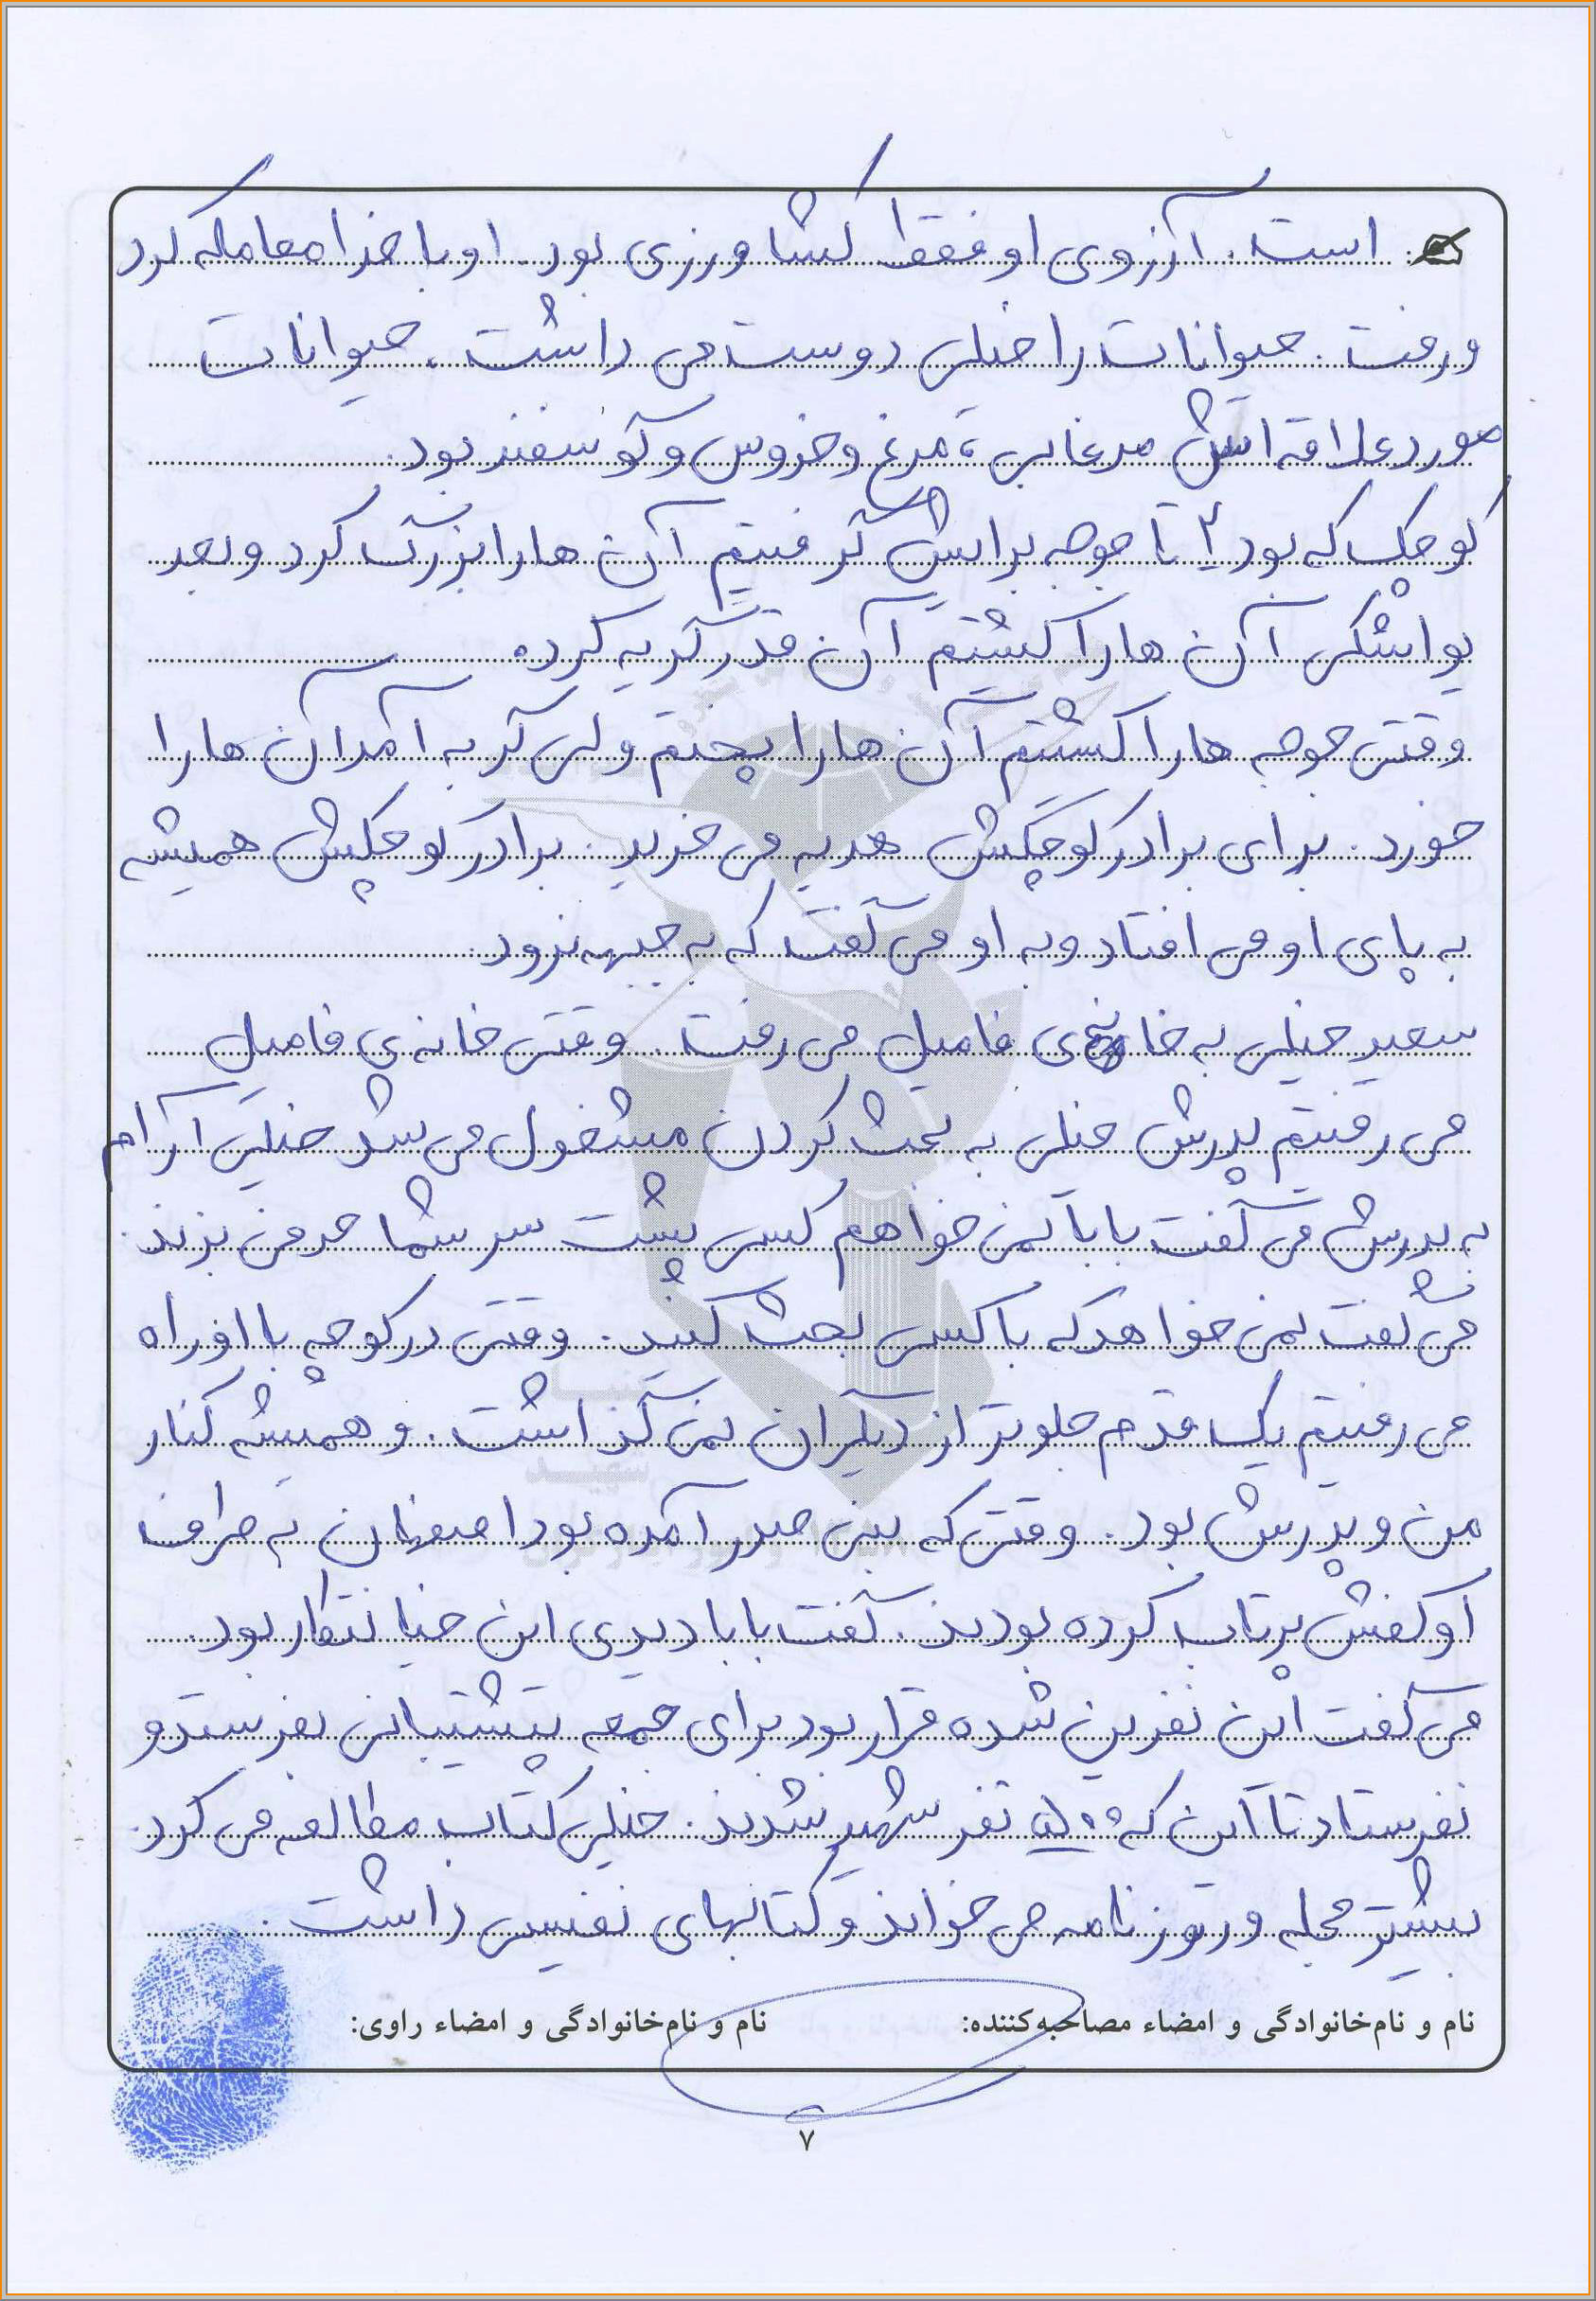 است. آرزوی او فقط کشاورزی بود. او با خدا معامله کرد
و رفت. حیوانات را خیلی دوست می داشت. حیوانات
مورد علاقه اش مرغابی، مرغ و خروس و گوسفند بود.
کوچک که بود ۲ تا جوجه برایش گرفتیم آن ها را بزرگ کرد و بعد
یواشکی آن ها را کشتیم آن قدر گریه کرد.
وقتی جوجه ها را کشتم آن ها را پختم ولی گربه آمد آن ها را
خورد. برای برادر کوچکش هدیه می خرید. برادر کوچکش همیشه
به پای او می افتاد و به او می گفت که به جبهه نرود.
سعید خیلی به خانه ی فامیل می رفت. وقتی خانه ی فامیل
می رفتیم پدرش خیلی به بحث کردن مشغول می شد خیلی آرام
به پدرش می گفت بابا نمی خواهم کسی پشت سر شما حرفی بزند.
می گفت نمی خواهد که با کسی بحث کنید. وقتی در کوچه با او راه
می رفتیم یک قدم جلوتر از دیگران نمی گذاشت. و همیشه کنار
من و پدرش بود. وقتی که بنی صدر آمده بود اصفهان به طرف
او کفش پرتاب کرده بودند. گفت بابا دیدی این خیانتکار بود.
می گفت این نفرین شده قرار بود برای جمعه پشتیبانی بفرستد و
نفرستاد تا این که ۵۰۰ نفر شهید شدند. خیلی کتاب مطالعه می کرد.
بیشتر مجله و روزنامه می خواند و کتابهای نفیسی داشت.
نام و نام‌خانوادگی و امضاء مصاحبه‌کننده: نام و نام‌خانوادگی و امضاء راوی:
۷